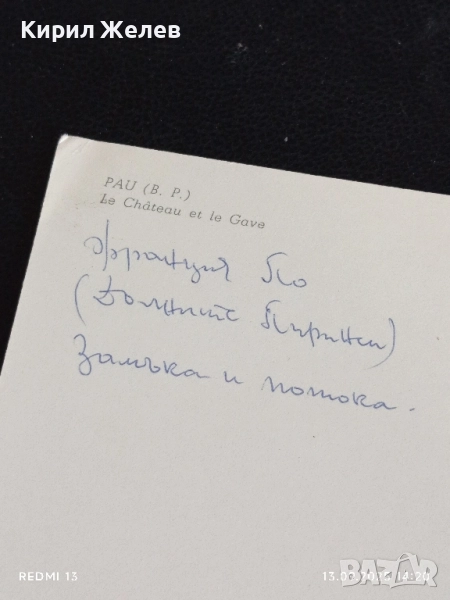 Кирил Желев
PAU (B. P.)
Le Château et le Gave
Франция По
(Долните Пиринеи)
Замъка и потока.
REDMI 13
BAZAR